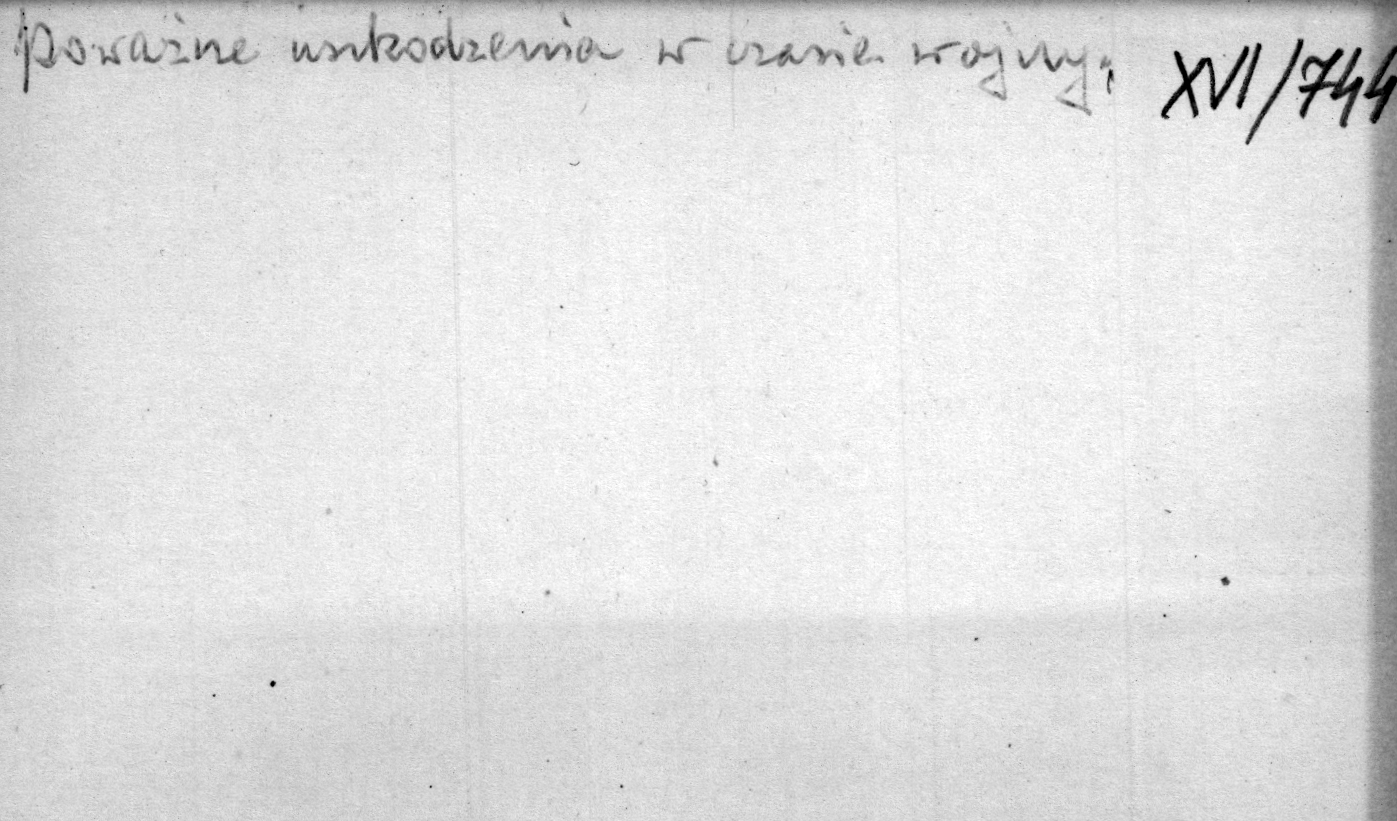 Poważne uszkodzenia w czasie wojny.
XVI/744